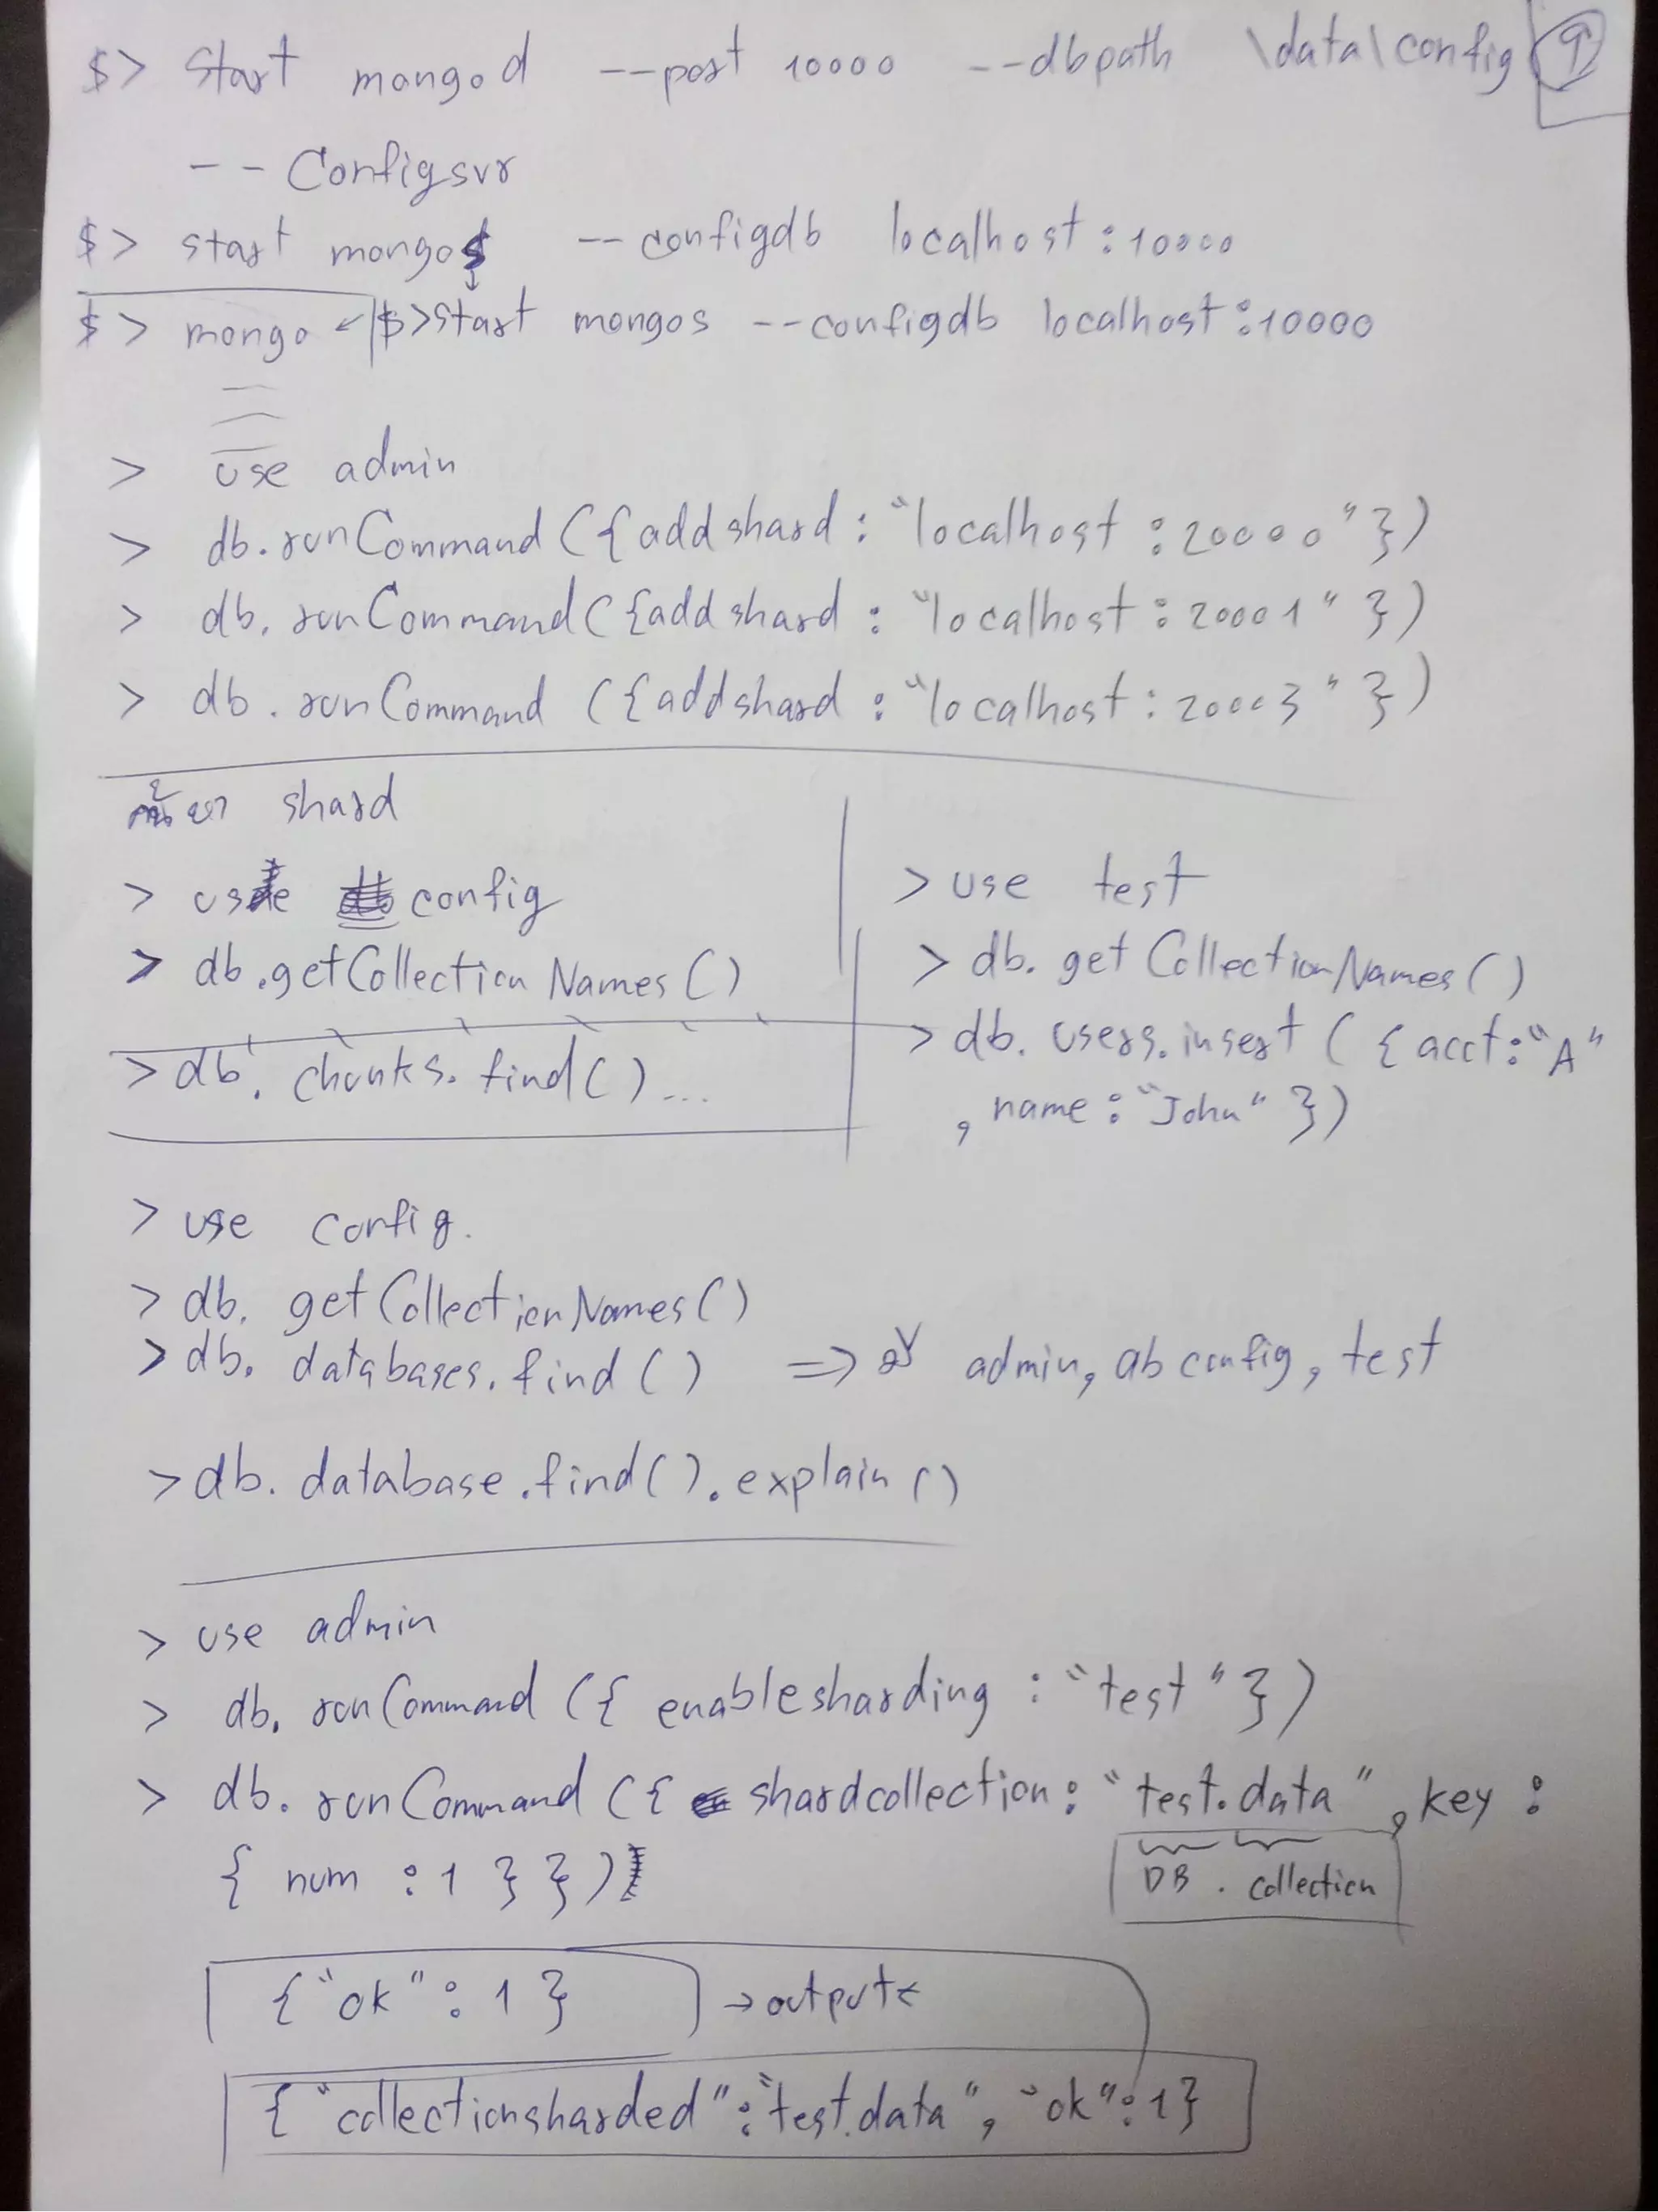 $> start mongod --port 10000 --dbpath \data\config
--Configsvr
$> start mongos --configdb localhost:10000
$> mongo ↙ $>start mongos --configdb localhost:10000
> use admin
> db.runCommand({addshard: "localhost:20000"})
> db.runCommand({addshard: "localhost:20001"})
> db.runCommand({addshard: "localhost:20003"})
shard
> use config
> db.getCollectionNames()
> db.chunks.find()...
> use test
> db.getCollectionNames()
> db.users.insert({acct:"A"
, name:"John"})
> use config.
> db.getCollectionNames()
> db.databases.find() => admin, ab config, test
> db.database.find().explain()
> use admin
> db.runCommand({enablesharding : "test"})
> db.runCommand({shardcollection: "test.data", key :
{ num : 1 } })
DB . collection
{"ok" : 1 } → output
{"collectionsharded":"test.data", "ok":1}